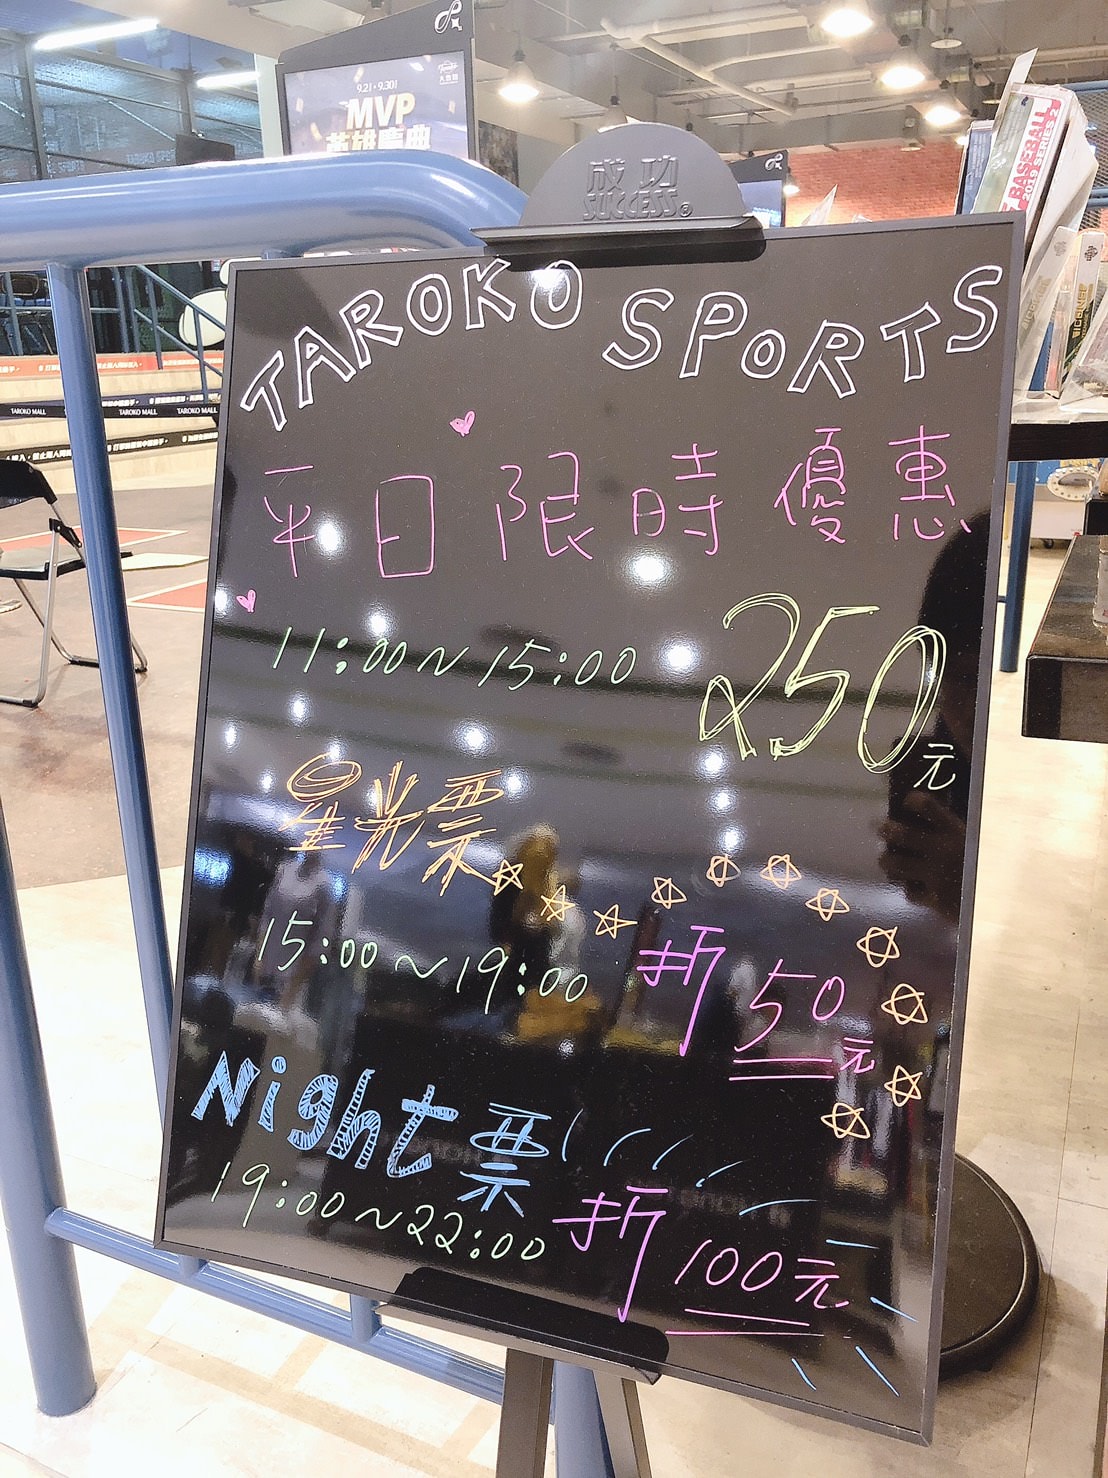 9.21-9.30
MVP
英雄慶典
成功
SUCCESS®
BASEBALL
2019 SERIES 2
TAROKO MALL
TAROKO MALL
TAROKO MALL
TAROKO SPORTS
平日限時優惠
11:00~15:00 250元
星光票
15:00~19:00 折50元
Night票
19:00~22:00 折100元